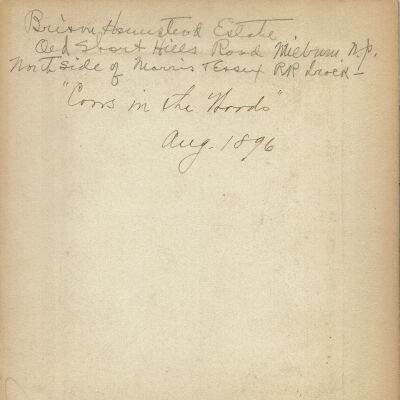 Brison Homestead Estate
Old Short Hills Road Milburn N.J.
North side of Morris & Essex RR track -
"Cows in the Woods"
Aug. 1896